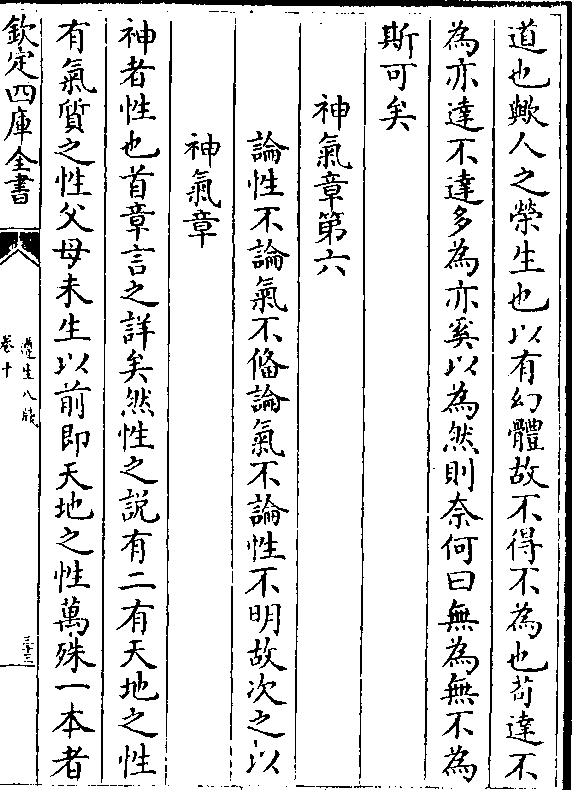 道也歟人之榮生也以有幻體故不得不為也茍達不
為亦達不達多為亦奚以為然則奈何曰無為無不為
斯可矣
神氣章第六
論性不論氣不俻論氣不論性不明故次之以
神氣章
神者性也首章言之詳矣然性之説有二有天地之性
有氣質之性父母未生以前即天地之性萬殊一本者
欽定四庫全書
遵生八牋
卷十
三十三